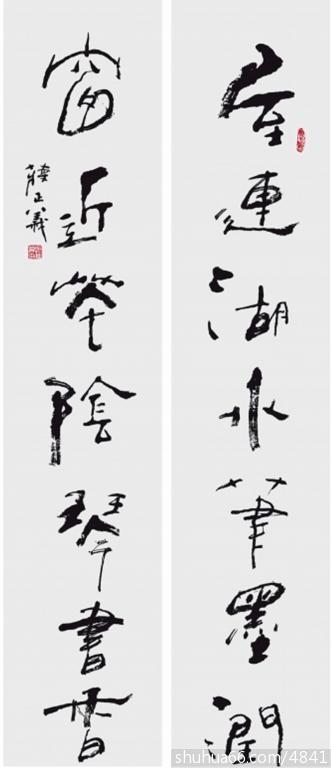 屋連湖水筆墨潤
窗近花陰琴書香
蔣正義
shuhua66.com/4841